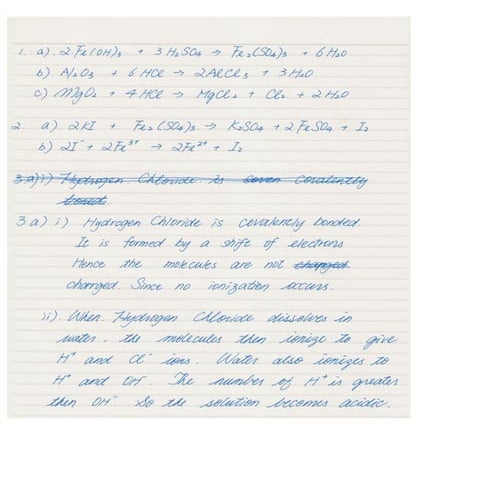 1. a). 2Fe(OH)₃ + 3H₂SO₄ → Fe₂(SO₄)₃ + 6H₂O
b). Al₂O₃ + 6HCl → 2AlCl₃ + 3H₂O
c) MgO₂ + 4HCl → MgCl₂ + Cl₂ + 2H₂O
2. a). 2KI + Fe₂(SO₄)₃ → K₂SO₄ + 2FeSO₄ + I₂
b) 2I⁻ + 2Fe³⁺ → 2Fe²⁺ + I₂
3.a) i) Hydrogen Chloride is coven covalently
bond.
3 a) i) Hydrogen Chloride is covalently bonded.
It is formed by a shift of electrons
Hence the molecules are not changed
charged. Since no ionization occurs.
ii) When Hydrogen Chloride dissolves in
water, the molecules then ionize to give
H⁺ and Cl⁻ ions. Water also ionizes to
H⁺ and OH⁻. The number of H⁺ is greater
then OH⁻. So the solution becomes acidic.